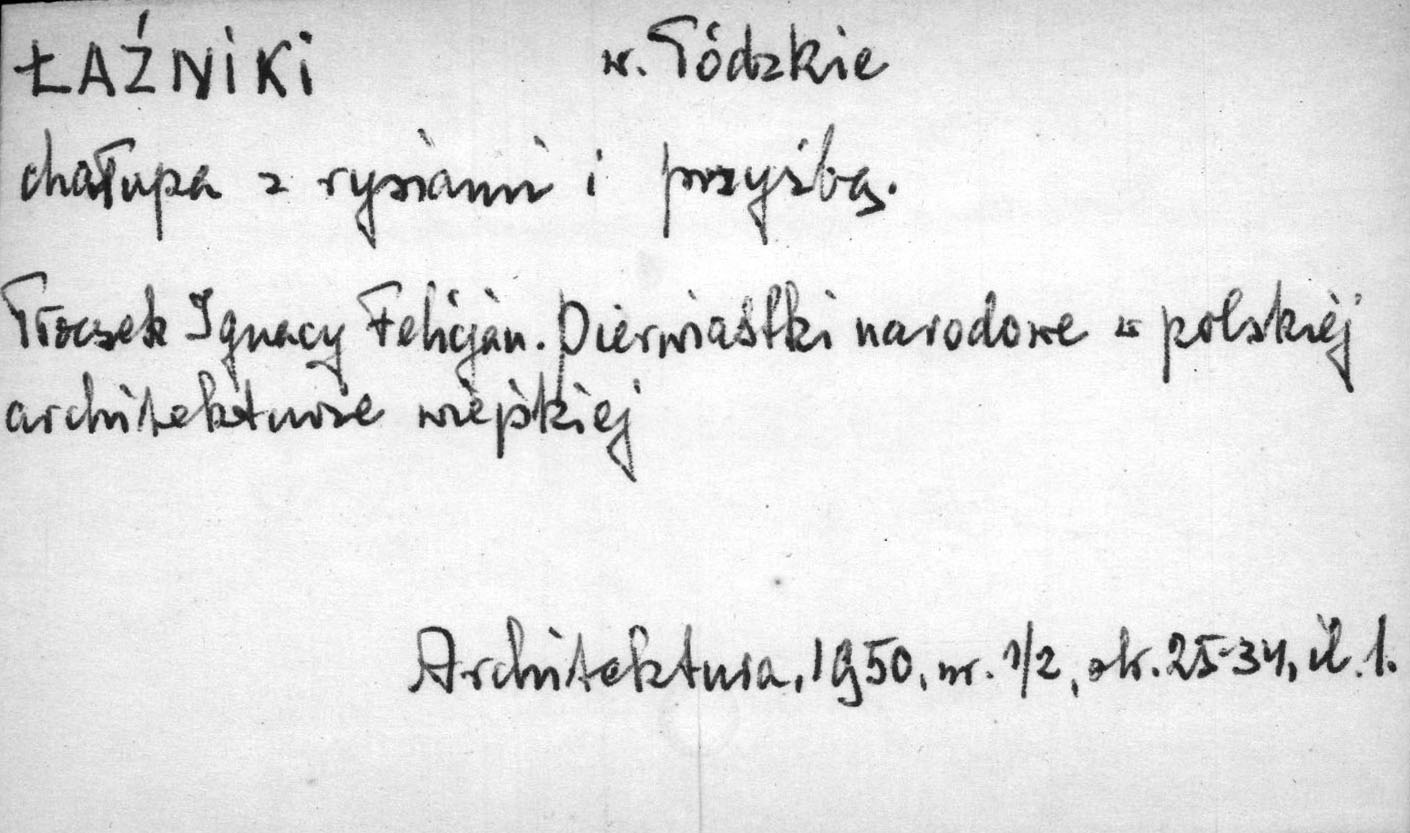 ŁAŹNIKI w. Łódzkie
chałupa z rysiami i przyźbą.
Tłoczek Ignacy Felicjan. Pierwiastki narodowe w polskiej
architekturze wiejskiej
Architektura, 1950, nr. 1/2, str. 25-34, il. 1.